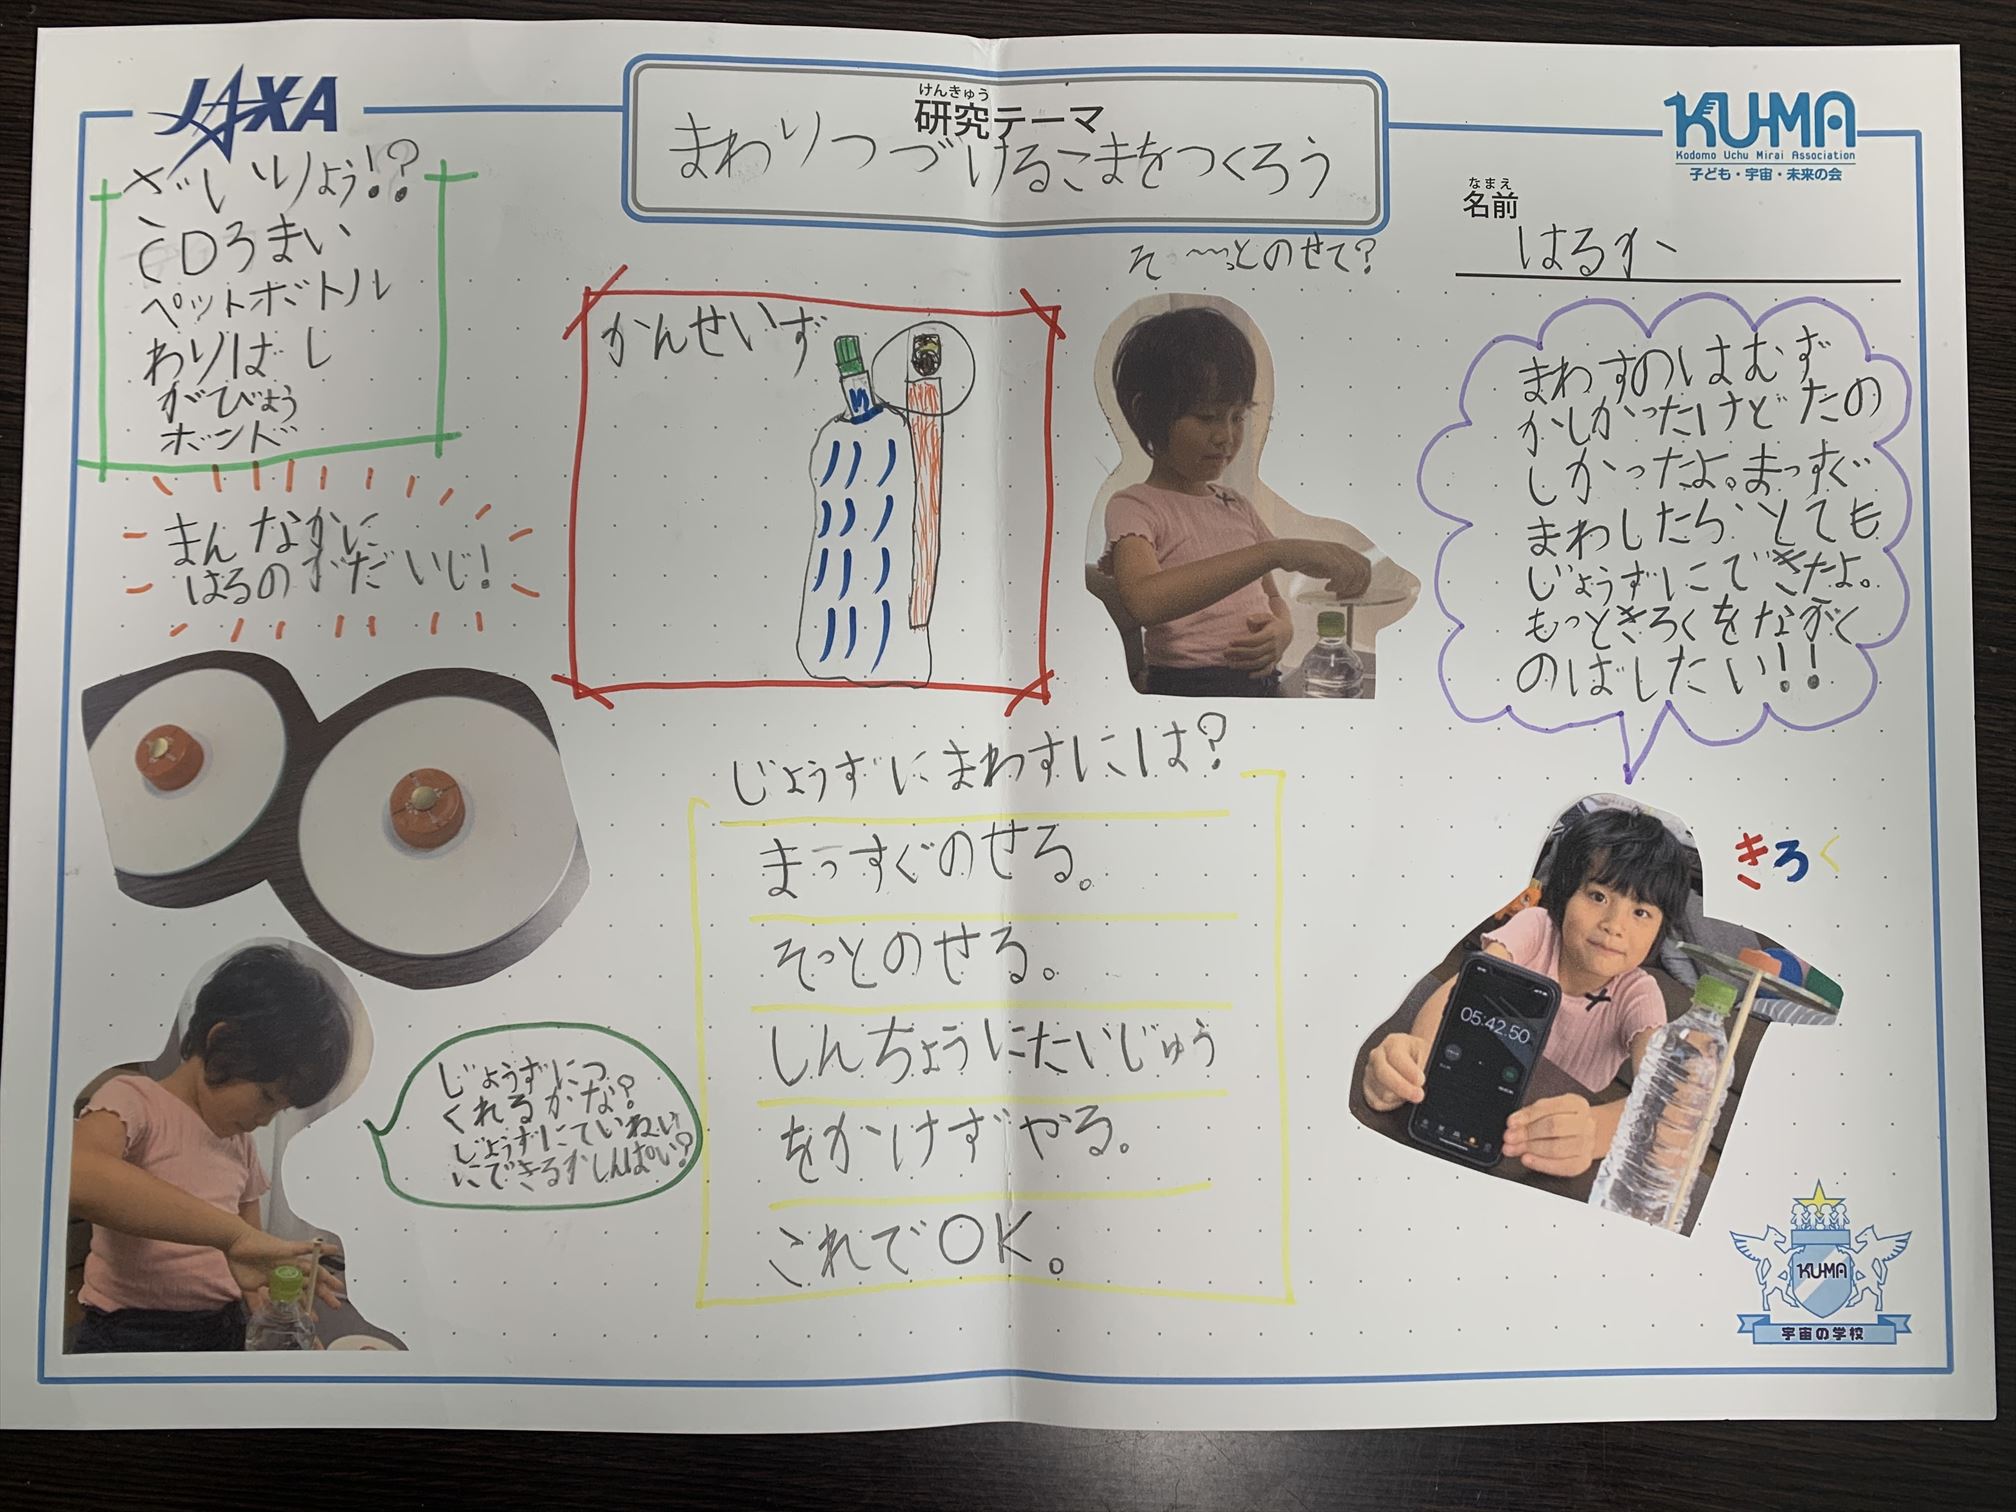 JAXA
けんきゅう
研究テーマ
まわりつづけるこまをつくろう
KUMA
Kodomo Uchu Mirai Association
子ども・宇宙・未来の会
なまえ
名前
はるか
ざいりょう!?
CD3まい
ペットボトル
わりばし
がびょう
ボンド
まんなかに
はるのがだいじ!
かんせいず
そ〜〜っとのせて?
まわすのはむず
かしかったけどたの
しかったよ。まっすぐ
まわしたらとても
じょうずにできたよ。
もっときろくをながく
のばしたい!!
じょうずにまわすには?
まっすぐのせる。
そっとのせる。
しんちょうにたいじゅう
をかけずやる。
これでOK。
じょうずにつ
くれるかな?
じょうずにていねい
にできるかしんぱい?
きろく
05:42.50
KUMA
宇宙の学校